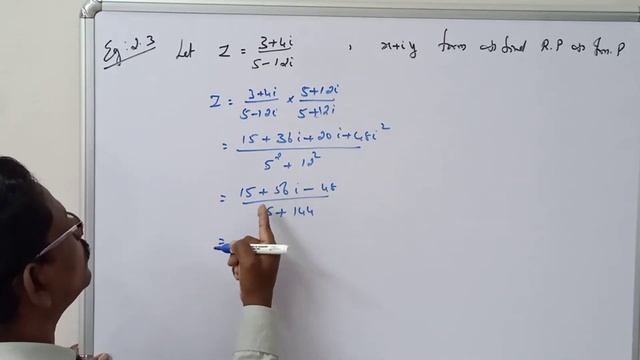 Eg: 2.3 Let Z = 3+4i / 5-12i , x+iy form or find R.P or Im.P
Z = 3+4i / 5-12i × 5+12i / 5+12i
= 15+36i+20i+48i² / 5²+12²
= 15+56i-48 / 5+144
=